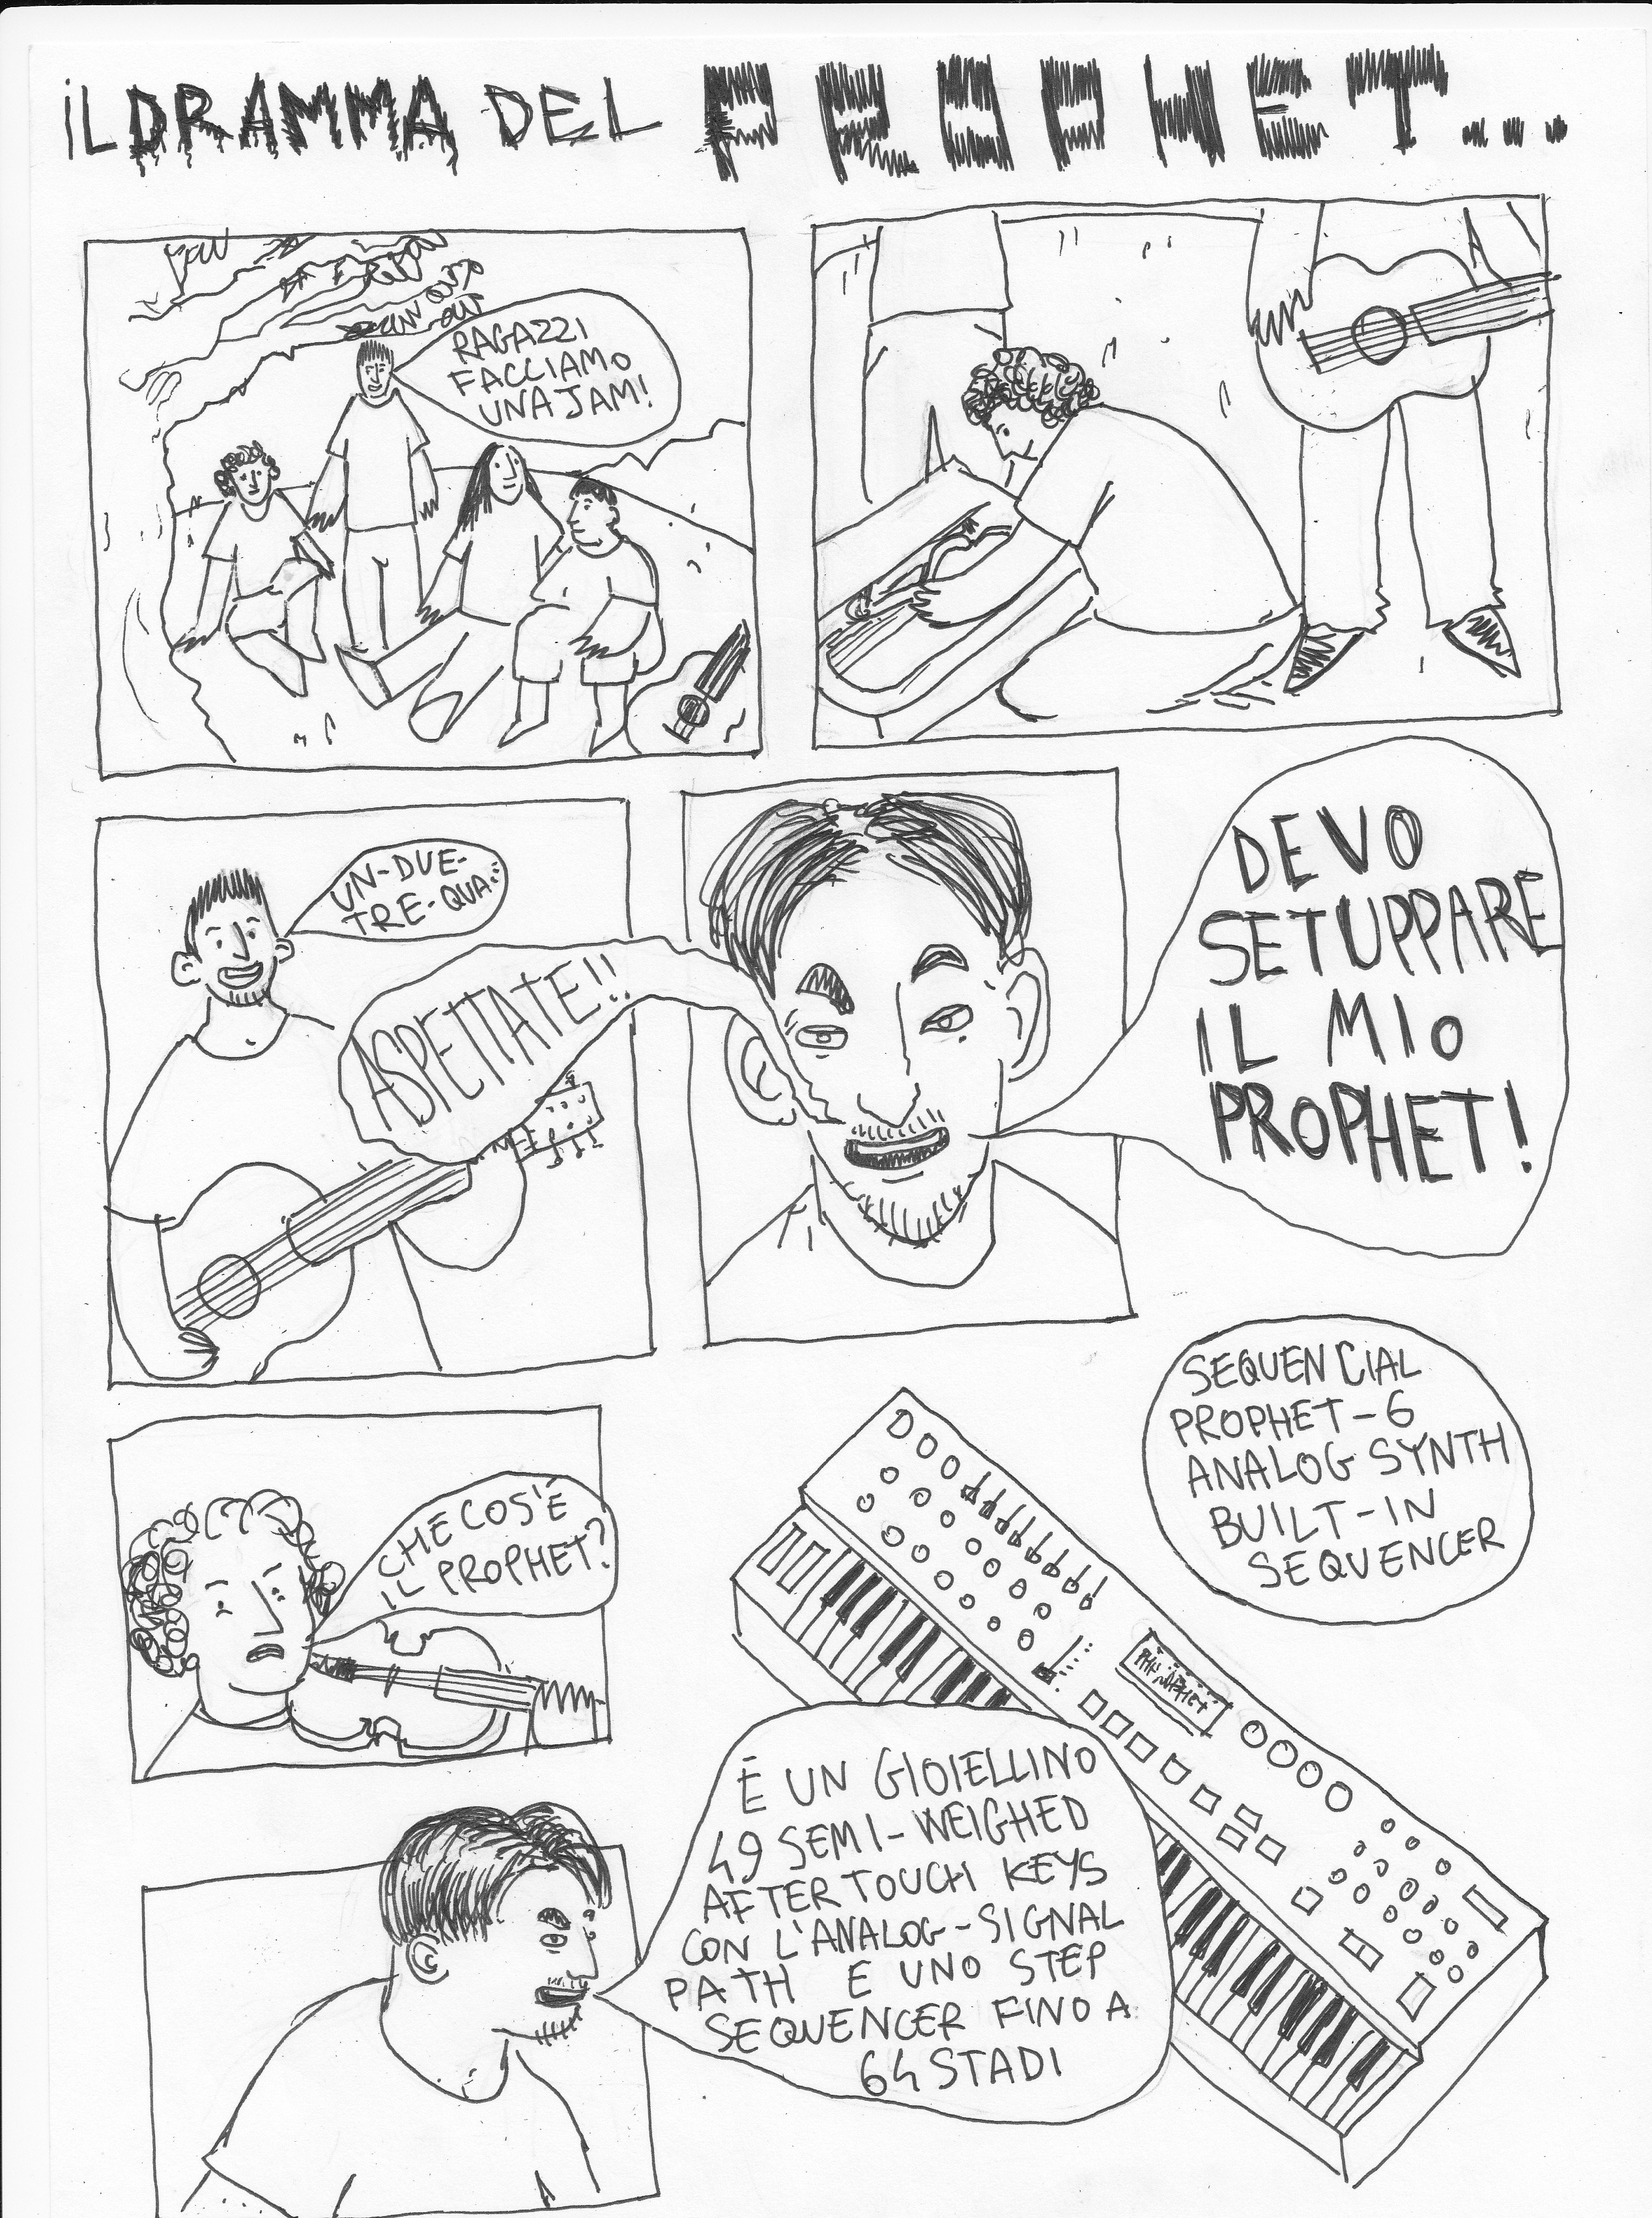 iL DRAMMA DEL PROPHET...
RAGAZZI
FACCIAMO
UNA JAM!
UN-DUE-
TRE-QUA...
ASPETTATE!!
DEVO
SETUPPARE
IL MIO
PROPHET!
CHE COS'È
IL PROPHET?
SEQUENCIAL
PROPHET-6
ANALOG SYNTH
BUILT-IN
SEQUENCER
È UN GIOIELLINO
49 SEMI-WEIGHED
AFTERTOUCH KEYS
CON L'ANALOG-SIGNAL
PATH E UNO STEP
SEQUENCER FINO A
64 STADI